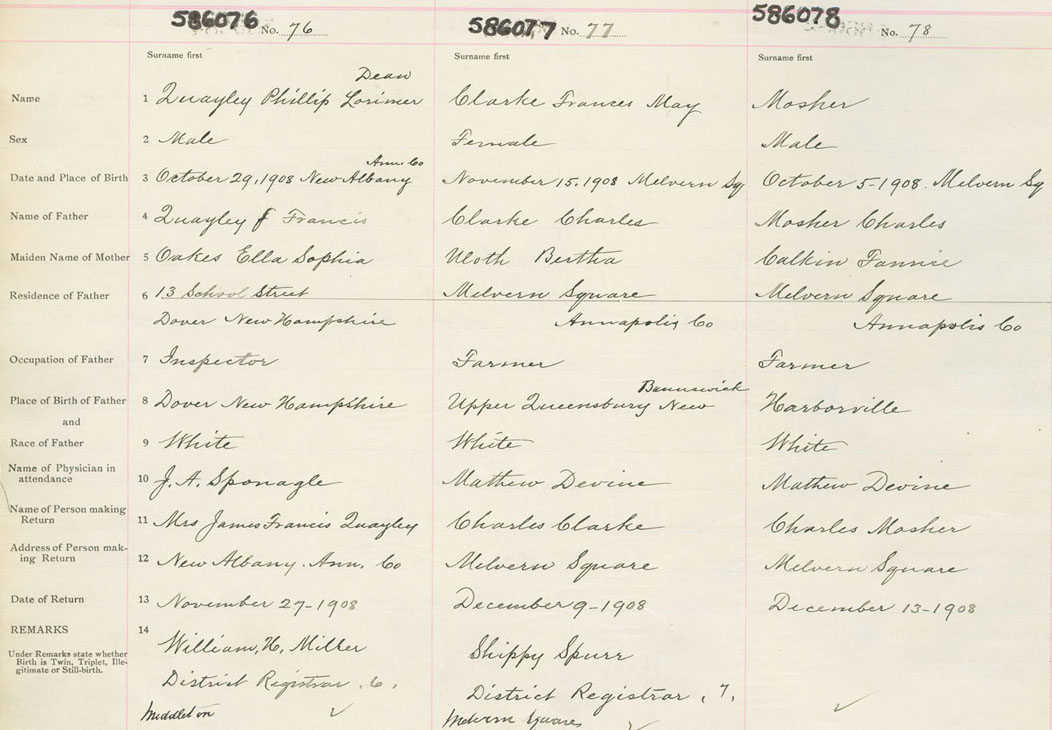 586076 No. 76 586077 No. 77 586078 No. 78
Surname first Surname first Surname first
Dean
Name 1 Quayley Phillip Lorimer Clarke Frances May Mosher
Sex 2 Male Female Male
Ann. Co
Date and Place of Birth 3 October 29, 1908 New Albany November 15. 1908 Melvern Sq October 5-1908. Melvern Sq
Name of Father 4 Quayley J Francis Clarke Charles Mosher Charles
Maiden Name of Mother 5 Oakes Ella Sophia Uloth Bertha Calkin Fannie
Residence of Father 6 13 School Street Melvern Square Melvern Square
Dover New Hampshire Annapolis Co Annapolis Co
Occupation of Father 7 Inspector Farmer Farmer
Brunswick
Place of Birth of Father 8 Dover New Hampshire Upper Queensbury New Harborville
and
Race of Father 9 White White White
Name of Physician in
attendance 10 J. A. Sponagle Mathew Devine Mathew Devine
Name of Person making
Return 11 Mrs James Francis Quayley Charles Clarke Charles Mosher
Address of Person mak-
ing Return 12 New Albany. Ann. Co Melvern Square Melvern Square
Date of Return 13 November 27-1908 December 9-1908 December 13-1908
REMARKS 14
William, H, Miller Shippy Spurr
Under Remarks state whether
Birth is Twin, Triplet, Ille-
gitimate or Still-birth.
District Registrar . 6, District Registrar , 7,
Middleton Melvern Square